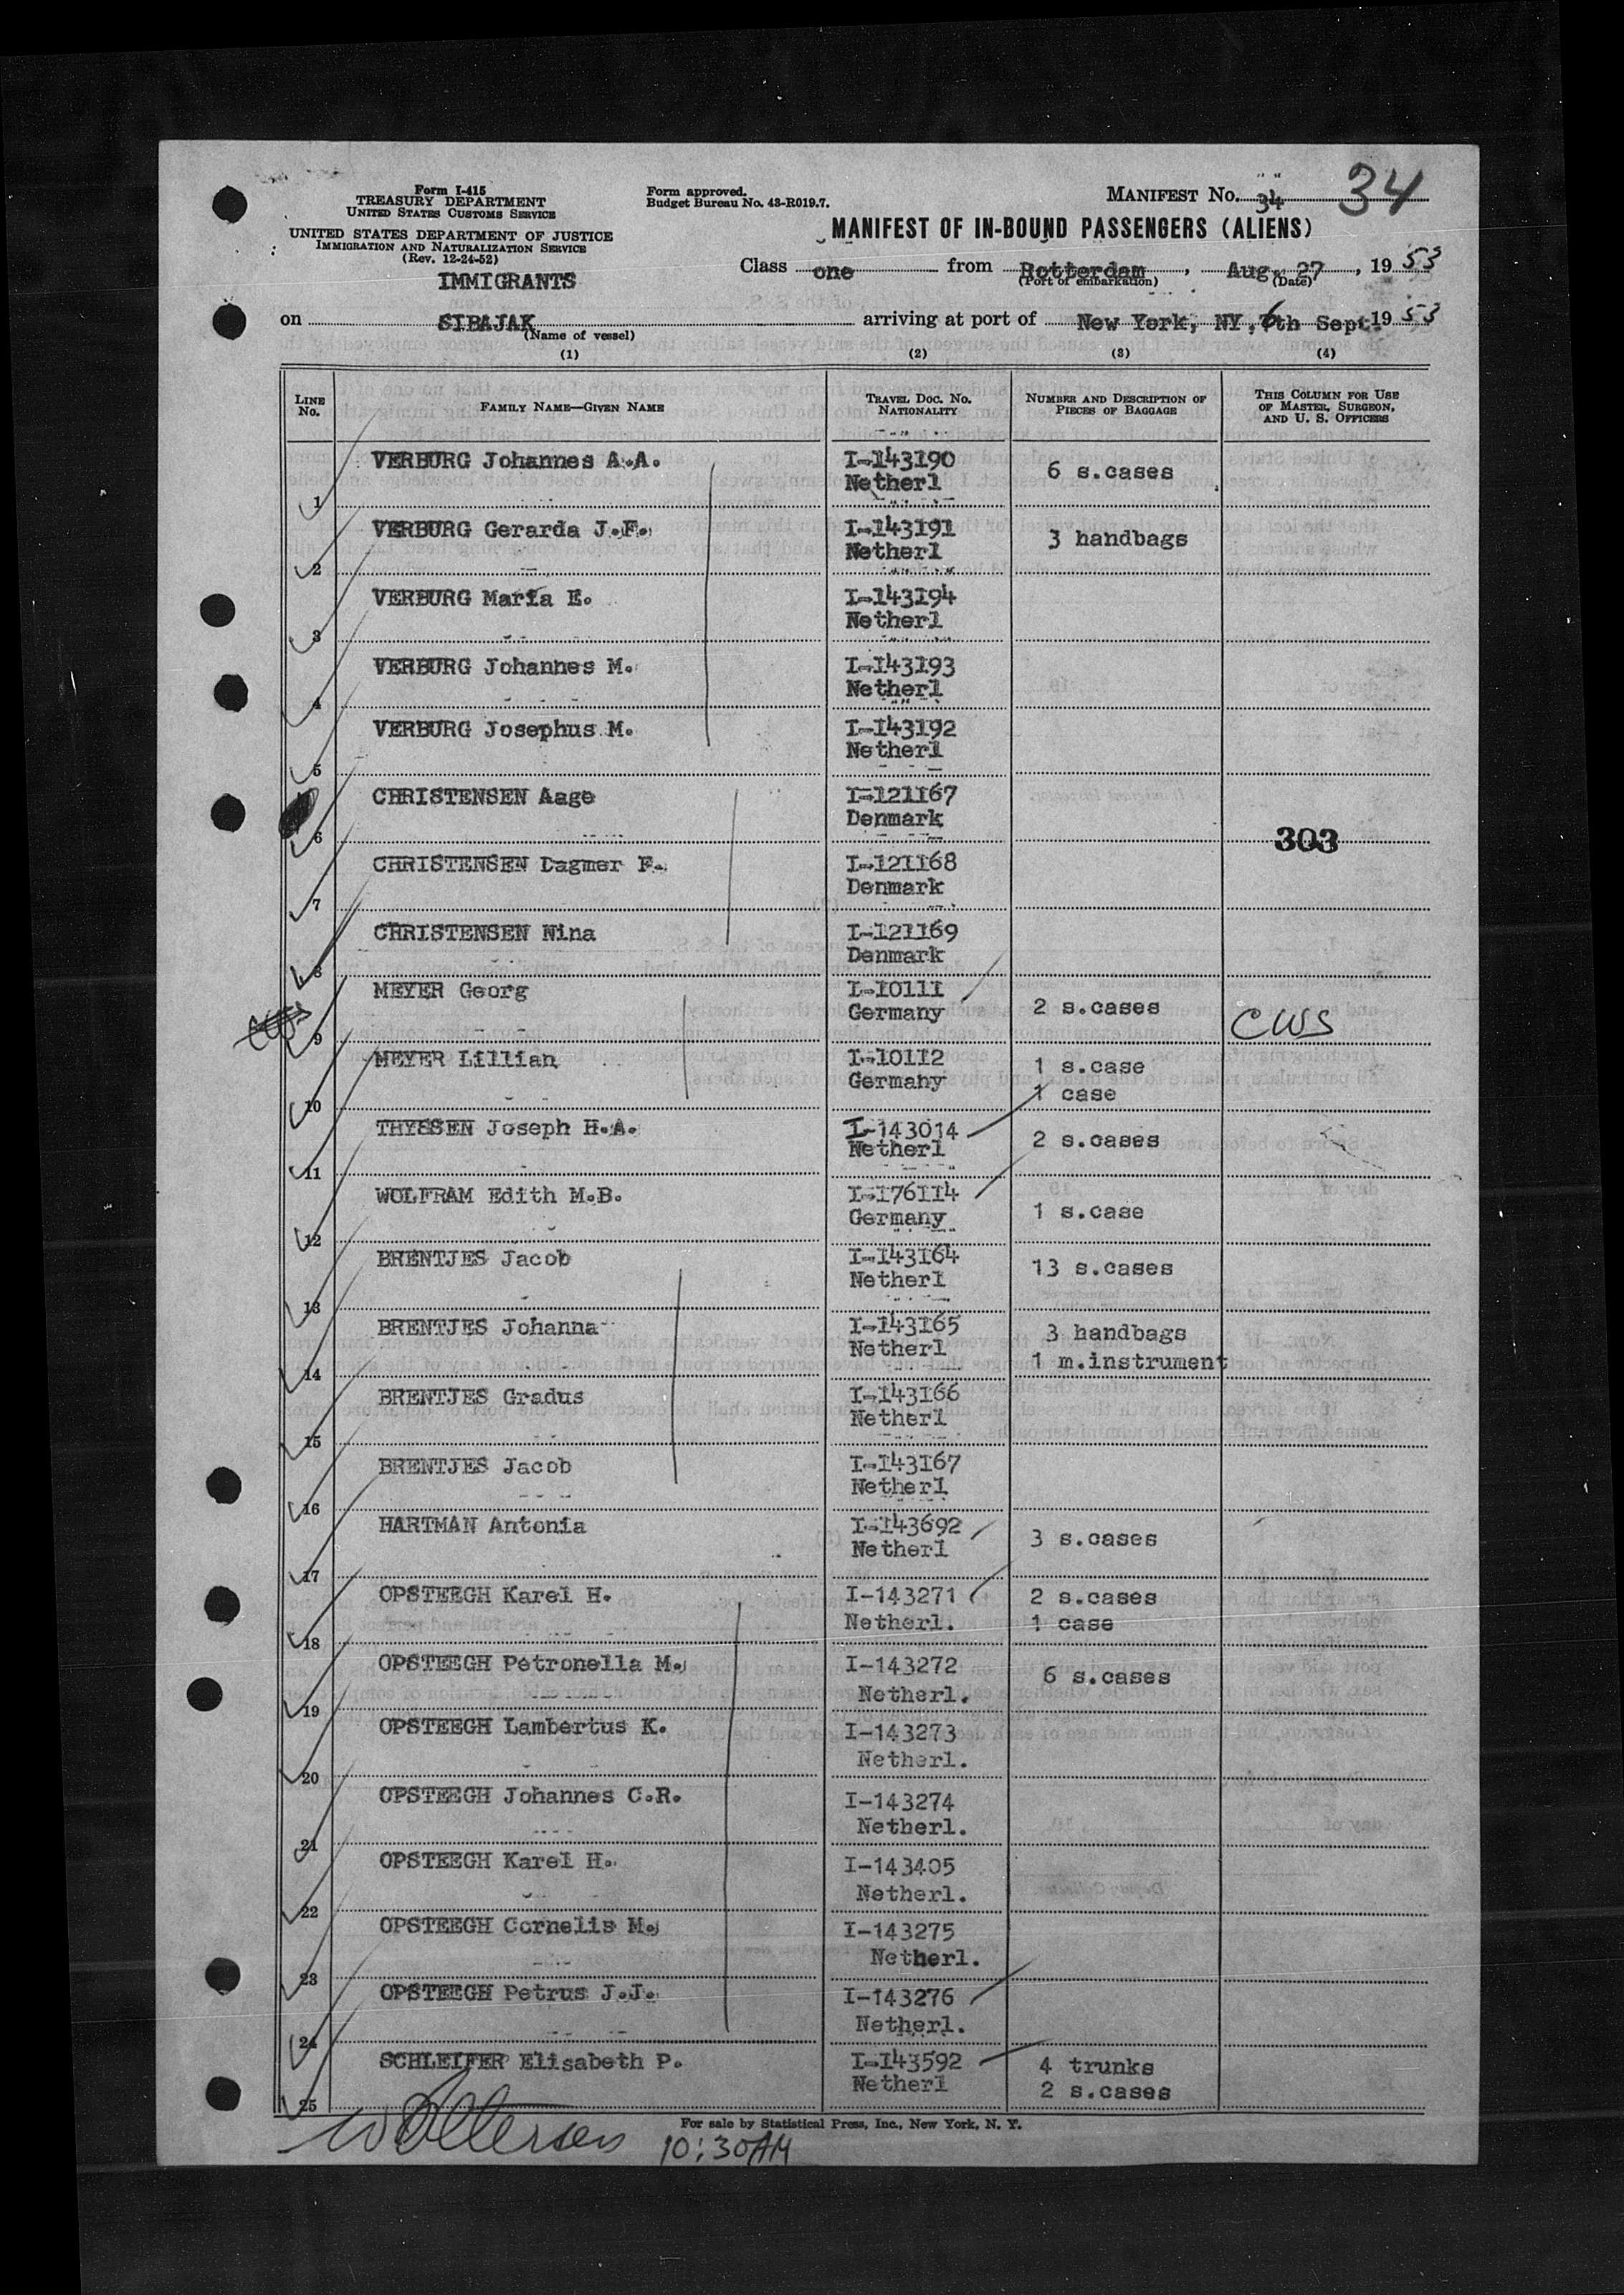 Form I-415
TREASURY DEPARTMENT
UNITED STATES CUSTOMS SERVICE
UNITED STATES DEPARTMENT OF JUSTICE
IMMIGRATION AND NATURALIZATION SERVICE
(Rev. 12-24-52)
IMMIGRANTS
Form approved.
Budget Bureau No. 43-R019.7.
MANIFEST No. 34 34
MANIFEST OF IN-BOUND PASSENGERS (ALIENS)
Class one from Rotterdam, Aug. 27, 1953
(Port of embarkation) (Date)
on SIBAJAK arriving at port of New York, NY, 6th Sept. 1953
(Name of vessel)
(1) (2) (3) (4)
LINE No. FAMILY NAME—GIVEN NAME TRAVEL DOC. NO. NATIONALITY NUMBER AND DESCRIPTION OF PIECES OF BAGGAGE THIS COLUMN FOR USE OF MASTER, SURGEON, AND U. S. OFFICERS
1 VERBURG Johannes A.A. I-143190 Netherl 6 s.cases
2 VERBURG Gerarda J.F. I-143191 Netherl 3 handbags
3 VERBURG Maria E. I-143194 Netherl
4 VERBURG Johannes M. I-143193 Netherl
5 VERBURG Josephus M. I-143192 Netherl
6 CHRISTENSEN Aage I-121167 Denmark 303
7 CHRISTENSEN Dagmer F. I-121168 Denmark
8 CHRISTENSEN Nina I-121169 Denmark
CWS 9 MEYER Georg I-10111 Germany 2 s.cases CWS
10 MEYER Lillian I-10112 Germany 1 s.case 1 case
11 THYSSEN Joseph H.A. I-143014 Netherl 2 s.cases
12 WOLFRAM Edith M.B. I-176114 Germany 1 s.case
13 BRENTJES Jacob I-143164 Netherl 13 s.cases
14 BRENTJES Johanna I-143165 Netherl 3 handbags 1 m.instrument
15 BRENTJES Gradus I-143166 Netherl
16 BRENTJES Jacob I-143167 Netherl
17 HARTMAN Antonia I-143692 Netherl 3 s.cases
18 OPSTEEGH Karel H. I-143271 Netherl. 2 s.cases 1 case
19 OPSTEEGH Petronella M. I-143272 Netherl. 6 s.cases
20 OPSTEEGH Lambertus K. I-143273 Netherl.
21 OPSTEEGH Johannes C.R. I-143274 Netherl.
22 OPSTEEGH Karel H. I-143405 Netherl.
23 OPSTEEGH Cornelis M. I-143275 Netherl.
24 OPSTEEGH Petrus J.J. I-143276 Netherl.
25 SCHLEIFER Elisabeth P. I-143592 Netherl 4 trunks 2 s.cases
For sale by Statistical Press, Inc., New York, N. Y.
10:30AM